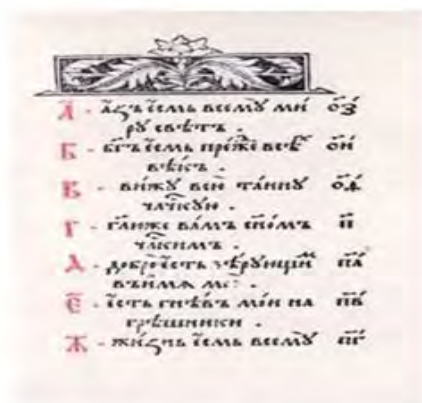 А҃ - а҆́зъ є҆́смь всемꙋ̀ ми́ ѻ҃з
рꙋ свѣ́тъ .
Б - бг҃ъ є҆́смь пре́жде всѣ́х ѻ҃и
вѣ́къ .
В - ви́жꙋ всю̀ та́инꙋ ѻ҃ѳ
члч҃кꙋю .
Г - гл҃ю же ва́мъ сн҃ѡмъ п҃
члч҃кимъ .
Д - добро̀ є҆́сть вѣ́рꙋющи҆м п҃а
въ и҆́мѧ моѐ .
Є҃ - є҆́сть гнѣ́въ мо́и на п҃в
грѣ́шники .
Ж - жи́знь є҆́смь всемꙋ̀ п҃г